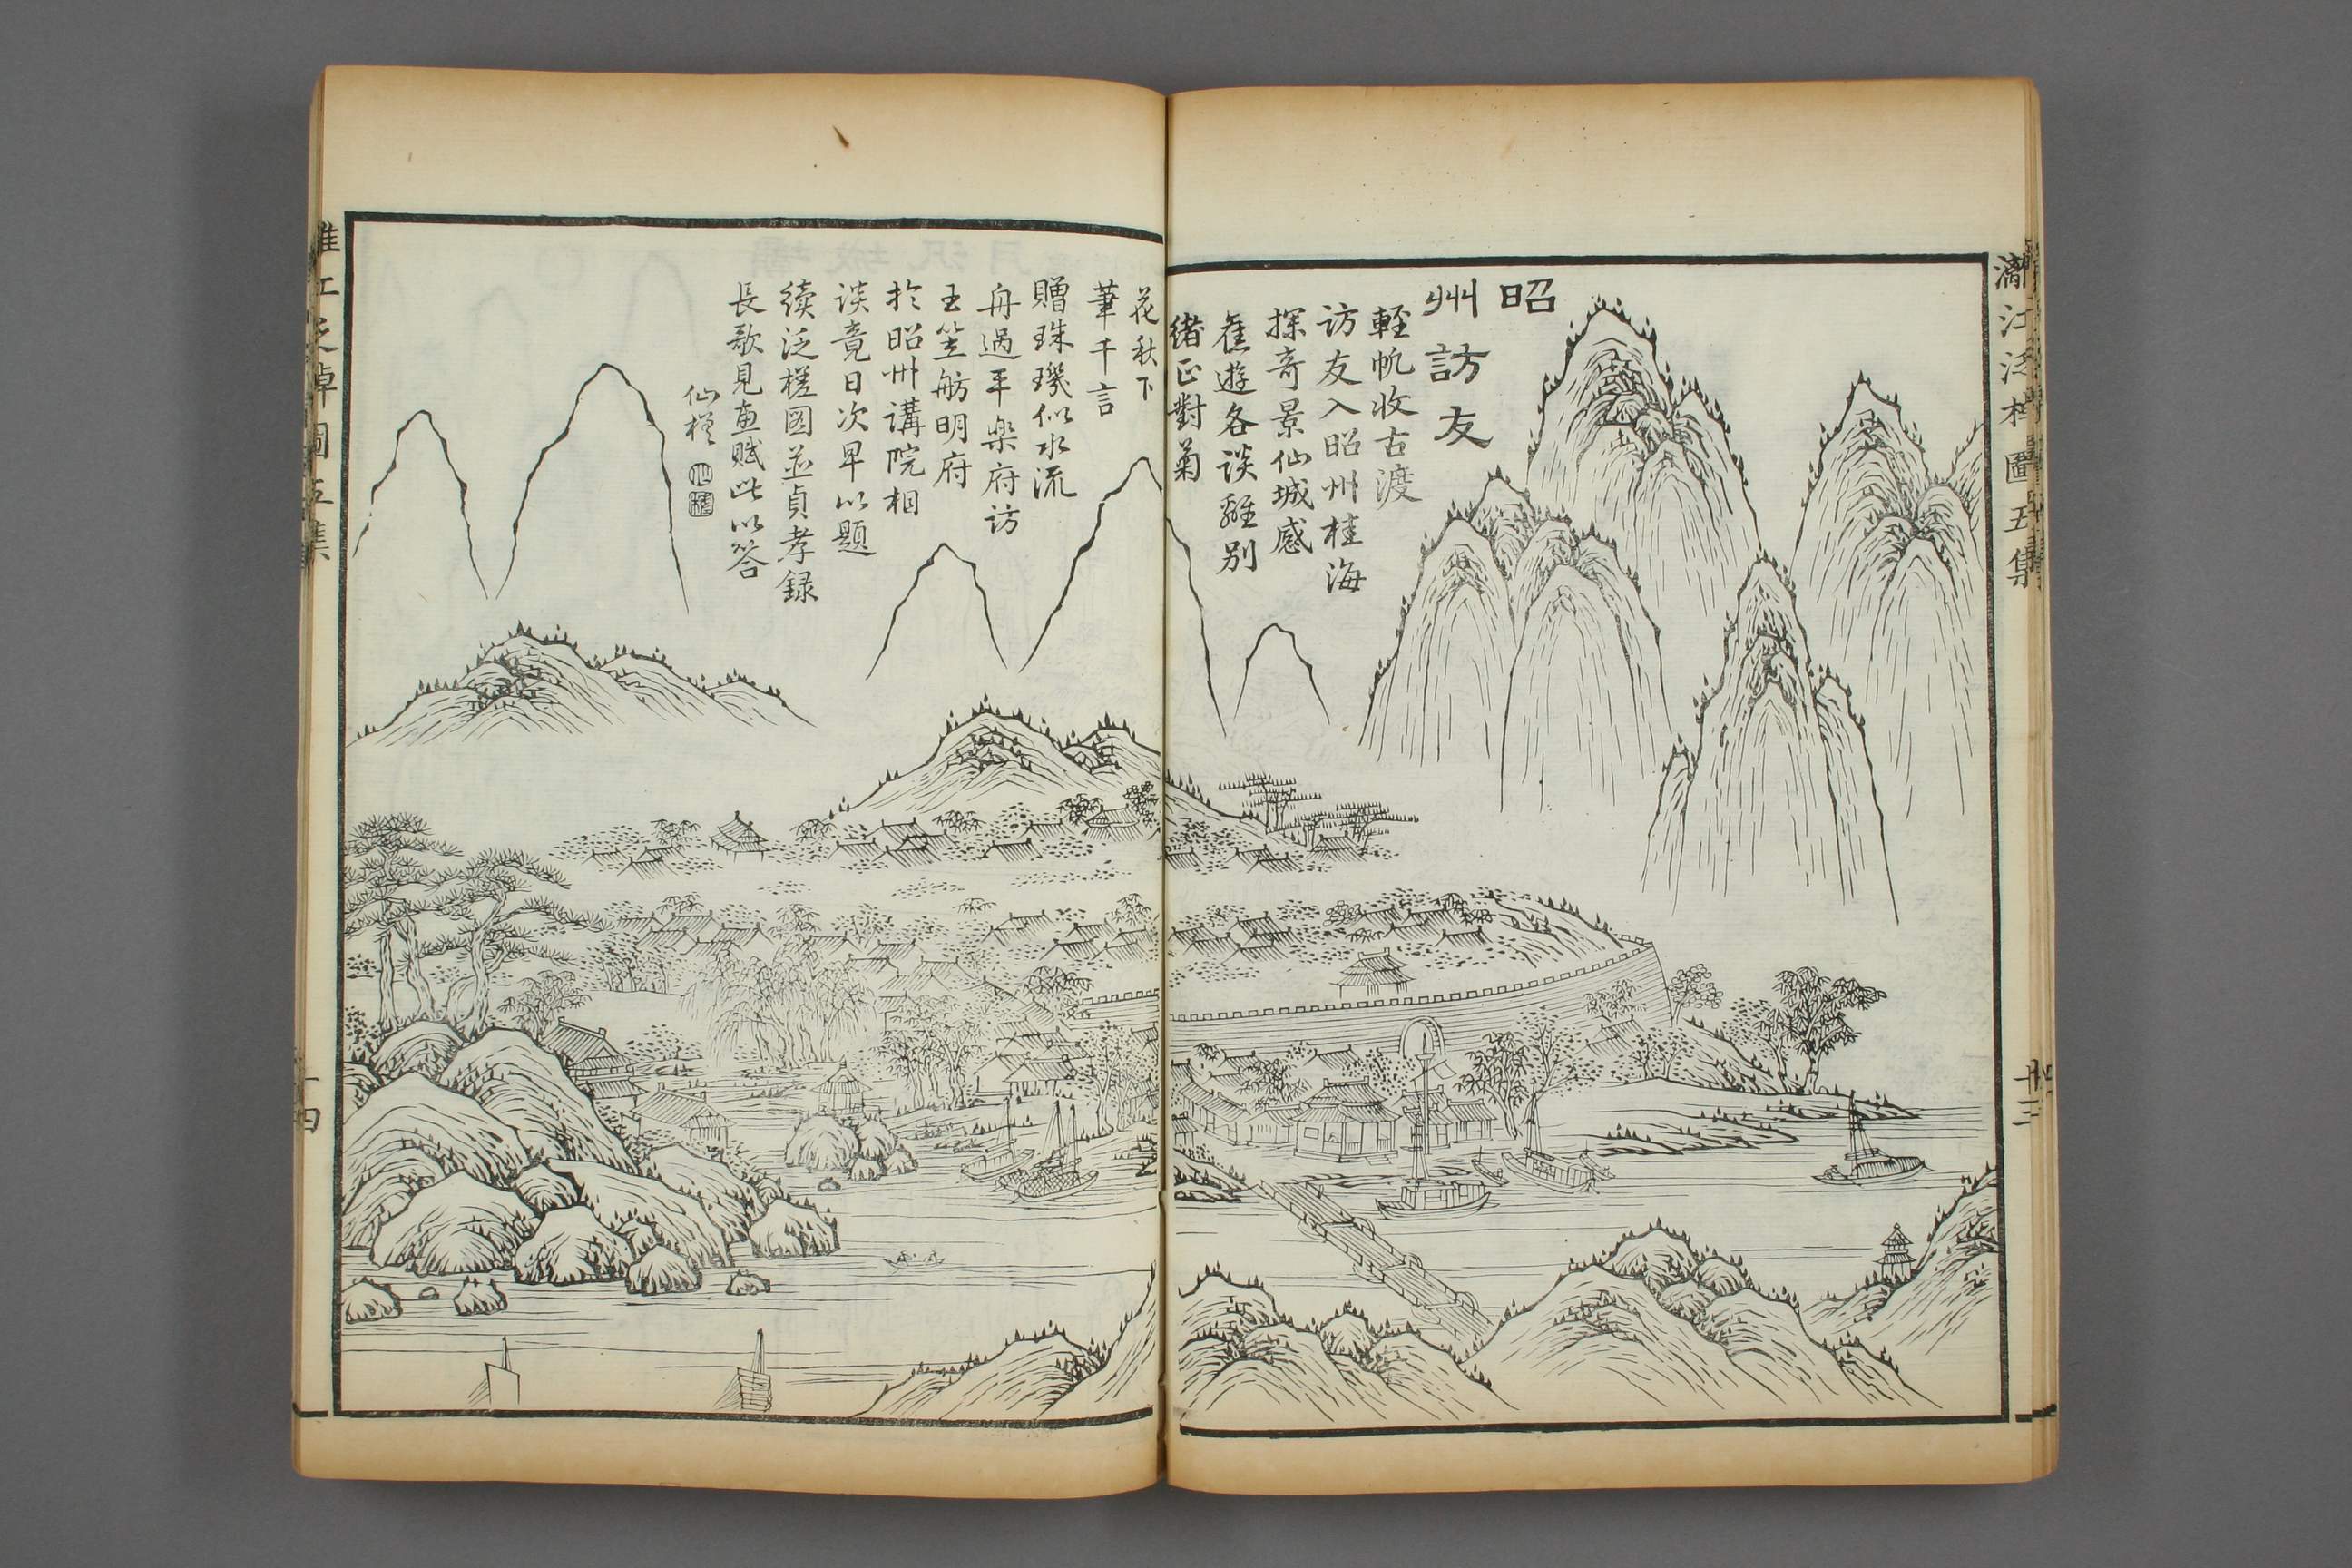 漓江泛棹圖五集
十三
昭
州訪友
輕帆收古渡
访友入昭州桂海
探奇景仙城感
舊遊各谈離别
緒正對菊
花秋下
筆千言
贈珠璣似水流
舟過平樂府访
王笠舫明府
扵昭州講院相
谈竟日次早以题
續泛槎图並貞孝録
長歌見惠賦此以答
仙槎
江泛棹圖五集
十四